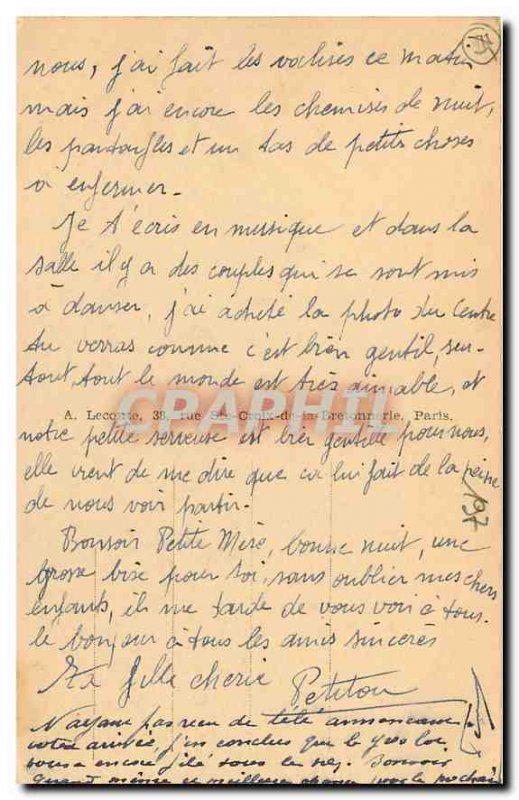 nous, j'ai fait les valises ce matin
mais j'ai encore les chemises de nuit,
les pantoufles et un tas de petits choses
à enfermer.
Je t'écris en musique et dans la
salle il y a des couples qui se sont mis
à danser, j'ai acheté la photo du Centre
tu verras comme c'est bien gentil, sur-
tout, tout le monde est très aimable, et
A. Lecomte, 38, rue Ste-Croix-de-la-Bretonnerie, Paris.
CPAPHIL
notre petite serveuse est bien gentille pour nous,
elle vient de me dire que ça lui fait de la peine
de nous voir partir.
Bonsoir Petite Mère, bonne nuit, une
grosse bise pour toi, sans oublier mes chers
enfants, il me tarde de vous voir à tous.
le bonjour à tous les amis sincères
Ta fille chérie Petitou
197
N'ayant pas reçu de télé annonçant
votre arrivée, j'en conclus que le
vous a encore sous le nez. Bonsoir
quand même et meilleure pour le prochain